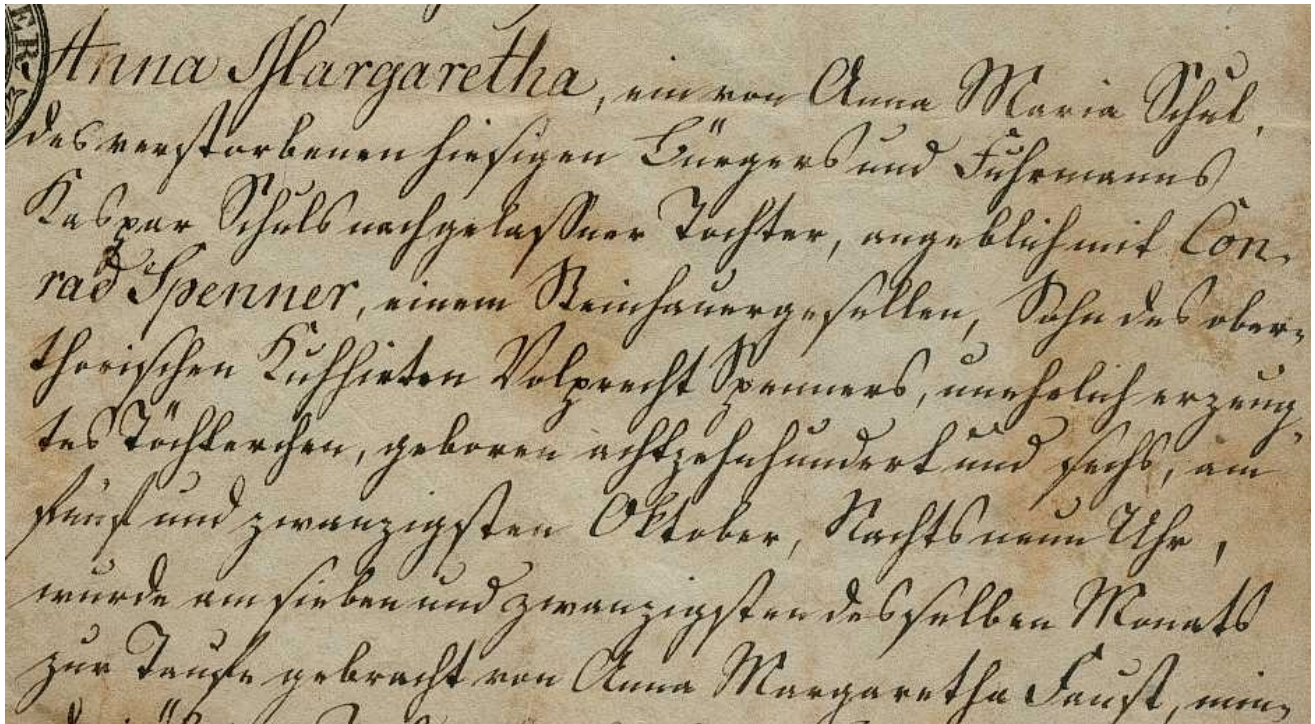 Anna Margaretha, ein von Anna Maria Schul,
des verstorbenen hiesigen Bürgers und Fuhrmanns
Kaspar Schuls nachgelaßner Tochter, angeblich mit Con-
rad Spenner, einem Steinhauergesellen, Sohn des ober-
thorischen Kuhhirten Volprecht Spenners, unehelich erzeug-
tes Töchterchen, geboren achtzehnhundert und sechs, am
fünf und zwanzigsten Oktober, Nachts neun Uhr,
wurde am sieben und zwanzigsten desselben Monats
zur Taufe gebracht von Anna Margaretha Faust, min-